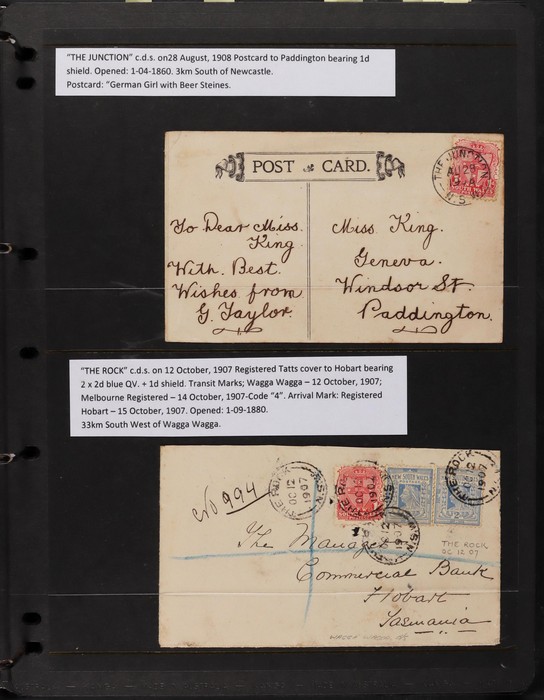 "THE JUNCTION" c.d.s. on28 August, 1908 Postcard to Paddington bearing 1d
shield. Opened: 1-04-1860. 3km South of Newcastle.
Postcard: "German Girl with Beer Steines.
POST CARD.
THE JUNCTION
AU 28
N.S.W
To Dear Miss.
King
With. Best.
Wishes from
G. Taylor.
Miss. King.
Geneva.
Windsor St.
Paddington.
"THE ROCK" c.d.s. on 12 October, 1907 Registered Tatts cover to Hobart bearing
2 x 2d blue QV. + 1d shield. Transit Marks; Wagga Wagga – 12 October, 1907;
Melbourne Registered – 14 October, 1907-Code "4". Arrival Mark: Registered
Hobart – 15 October, 1907. Opened: 1-09-1880.
33km South West of Wagga Wagga.
No 994
THE ROCK
OC 12
1907
N.S.W
THE ROCK
OC 12
1907
N.S.W
THE ROCK
OC 12
1907
N.S.W
OC 12
1907
N.S.W
NEW SOUTH WALES
THE ROCK
OC 12 07
The Manager
Commercial Bank
Hobart
Tasmania